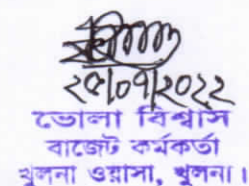 ২৫/০৭/২০২২
ভোলা বিশ্বাস
বাজেট কর্মকর্তা
খুলনা ওয়াসা, খুলনা।